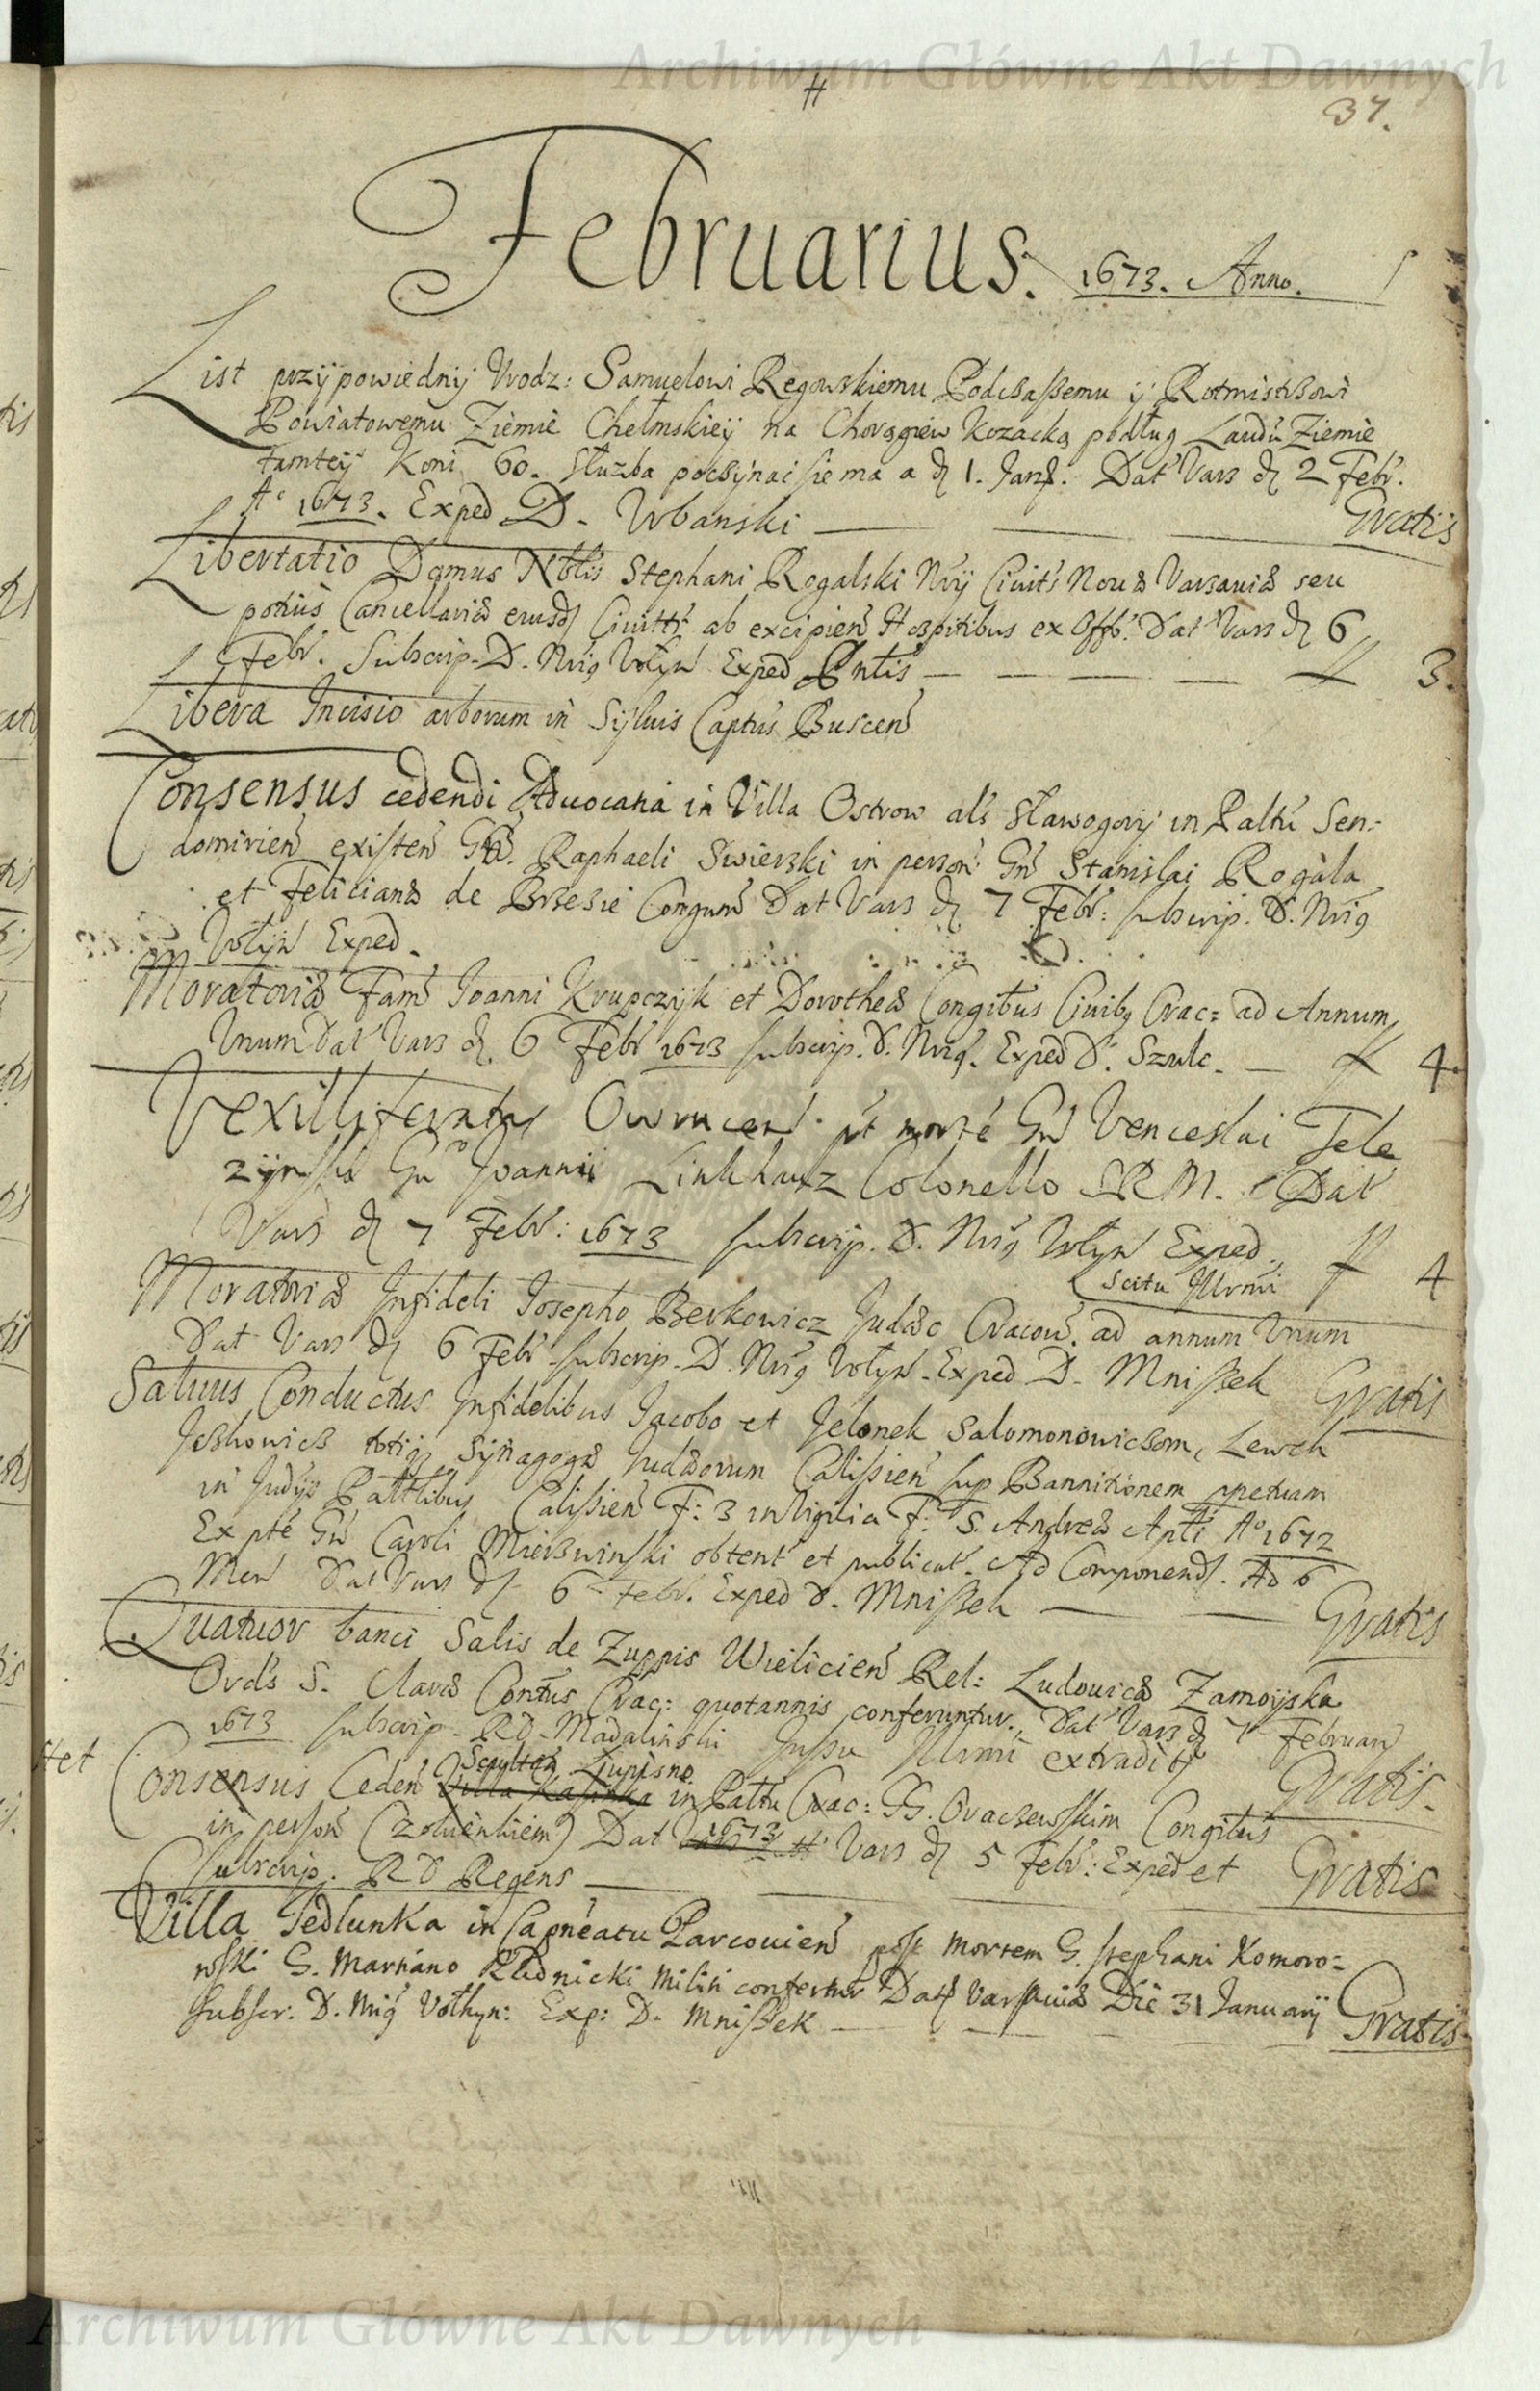 Archiwum Główne Akt Dawnych
37.
Februarius. 1673. Anno.
List przypowiednij Vrodz: Samuelowi Regowskiemu Podczaszemu ij Rotmistrzowi
Powiatowemu Ziemie Chełmskieij na Chorągiew Kozacką podług Laudu Ziemie
tamteij Koni 60. Służba poczynac sie ma a d 1. Jan. Dat Vars d 2 Febr.
Aº 1673. Exped D. Vrbanski Gratis
Libertatio Domus Nobis Stephani Rogalski Nrij Civits Nouæ Varsauiæ seu
potius Cancellariæ eiusd Civitt ab excipien Hospitibus ex Offo. Dat Vars d 6
Febr. Subscrip. D. Nrig Vołyn Exped Pntis ff 3.
Libera Incisio arborum in Sijluis Captus Buscen
Consensus cedendi Aduocatia in Villa Ostrow als Sławogory in Paltu Sen-
domirien existen G. Raphaeli Swierski in person Gn Stanislai Rogala
et Felicianæ de Brzezie Congum Dat Vars d 7 Febr: subscrip. D. Nrig
Vołyn Exped.
Moratoriæ Fam Joanni Krupczyk et Dorotheæ Congibus Civibq Crac: ad Annum
Vnum Dat Vars d. 6 Febr 1673 subscrip. D. Nrig. Exped D. Szulc. ff 4.
Vexilliferatus Owrucen pt morte Gn Venceslai Tele
zynski Gn Joanni Linkhauz Colonello SRM. Dat
Vars d 7 Febr: 1673 subscrip. D. Nrig Vołyn Exped ff 4
Scitu Illrmi
Moratoriæ Infideli Josepho Berkowicz Judæo Cracow. ad annum Vnum
Dat Vars d 6 Febr subscrip. D. Nrig Vołyn. Exped D. Mniszek Gratis
Saluus Conductus Infidelibus Jacobo et Jelonek Salomonowiczom, Lewek
totiq Synagogæ Judæorum Calissien sup Bannitionem ppetuam
in Judys Palttlibus Calissien F: 3 in Vigilia F: S. Andreæ Aptli Aº 1672
Ex pte Gn Caroli Mierzwinski obtent et publicat. Ad Componend. Ad 6
Men Dat Vars d 6 Febr. Exped D. Mniszek Gratis
Quatuor banci Salis de Zuppis Wielicien Rel: Ludouicæ Zamoyska
Ords S. Claræ Contus Crac: quotannis conferuntur. Dat Vars d 7 Februar
1673 subscrip. RD. Madalinski Jussu Illrmi extradit Gratis.
stet
Scultet Zupisno
Consensus Ceden Villa in Paltu Crac: G. Oraczewskim Congibus
in person (Zolwienkiem) Dat 1673 Vars d 5 Febr: Exped et
subscrip. RD Regens Gratis
Villa Jedlunka in Capneatu Parcouien post mortem G. Stephani Komoro-
wski G. Martiano Rudnicki militi confertur Dat Varsauiæ Die 31 Januarij
Subscr: D. Nrig Vołhyn: Exp: D. Mniszek Gratis
Archiwum Główne Akt Dawnych